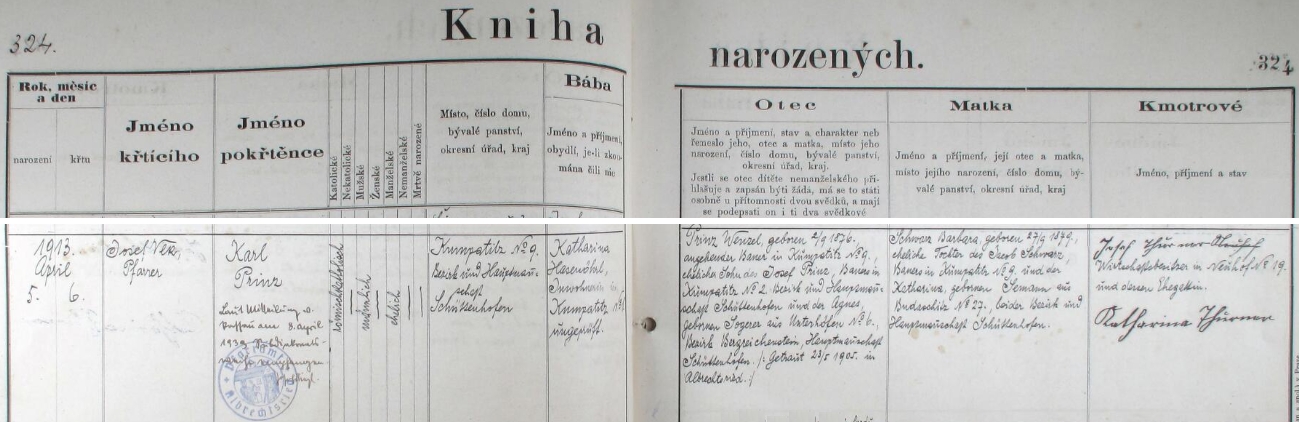 324.
Kniha
narozených.
324
Rok, měsíc
a den
narození křtu
Jméno
křtícího
Jméno
pokřtěnce
Katolické
Nekatolické
Mužské
Ženské
Manželské
Nemanželské
Mrtvě narozené
Místo, číslo domu,
bývalé panství,
okresní úřad, kraj
Bába
Jméno a příjmení,
obydlí, je-li zkou-
mána čili nic
Otec
Jméno a příjmení, stav a charakter neb
řemeslo jeho, otec a matka, místo jeho
narození, číslo domu, bývalé panství,
okresní úřad, kraj.
Jestli se otec dítěte nemanželského při-
hlašuje a zapsán býti žádá, má se to státi
osobně u přítomnosti dvou svědků, a mají
se podepsati on i ti dva svědkové
Matka
Jméno a příjmení, její otec a matka,
místo jejího narození, číslo domu, bý-
valé panství, okresní úřad, kraj
Kmotrové
Jméno, příjmení a stav
1913.
April
5. 6.
Josef
Pfarer
Karl
Prinz
Laut Mitteilung
am 8. April
1939
Pfarramt
Albrechtsried
römischkatholisch
männlich
ehelich
Kumpatitz No 9,
Bezirk und Hauptman-
schaft
Schüttenhofen
Katharina
Hasenöhrl,
Kumpatitz
ungeprüft.
Prinz Wenzel, geboren 2/9 1876,
angehender Bauer in Kumpatitz No 9.,
ehelicher Sohn des Josef Prinz, Bauers in
Kumpatitz No 2. Bezirk und Hauptman-
schaft Schüttenhofen und der Agnes,
gebornen Sogerer aus Unterhöfen No 6.,
Bezirk Bergreichenstein, Hauptmanschaft
Schüttenhofen. /: Getraut 23/5 1905. in
Albrechtsried. :/
Schwarz Barbara, geboren 27/9 1879.,
eheliche Tochter des Jacob Schwarz,
Bauers in Kumpatitz No 9. und der
Katharina, gebornen Semann aus
Budaschitz No 27., beider Bezirk und
Hauptmanschaft Schüttenhofen.
Josef Thürner
Wirtschaftsbesitzer in Neuhof No 19.
und dessen Ehegattin.
Katharina Thürner